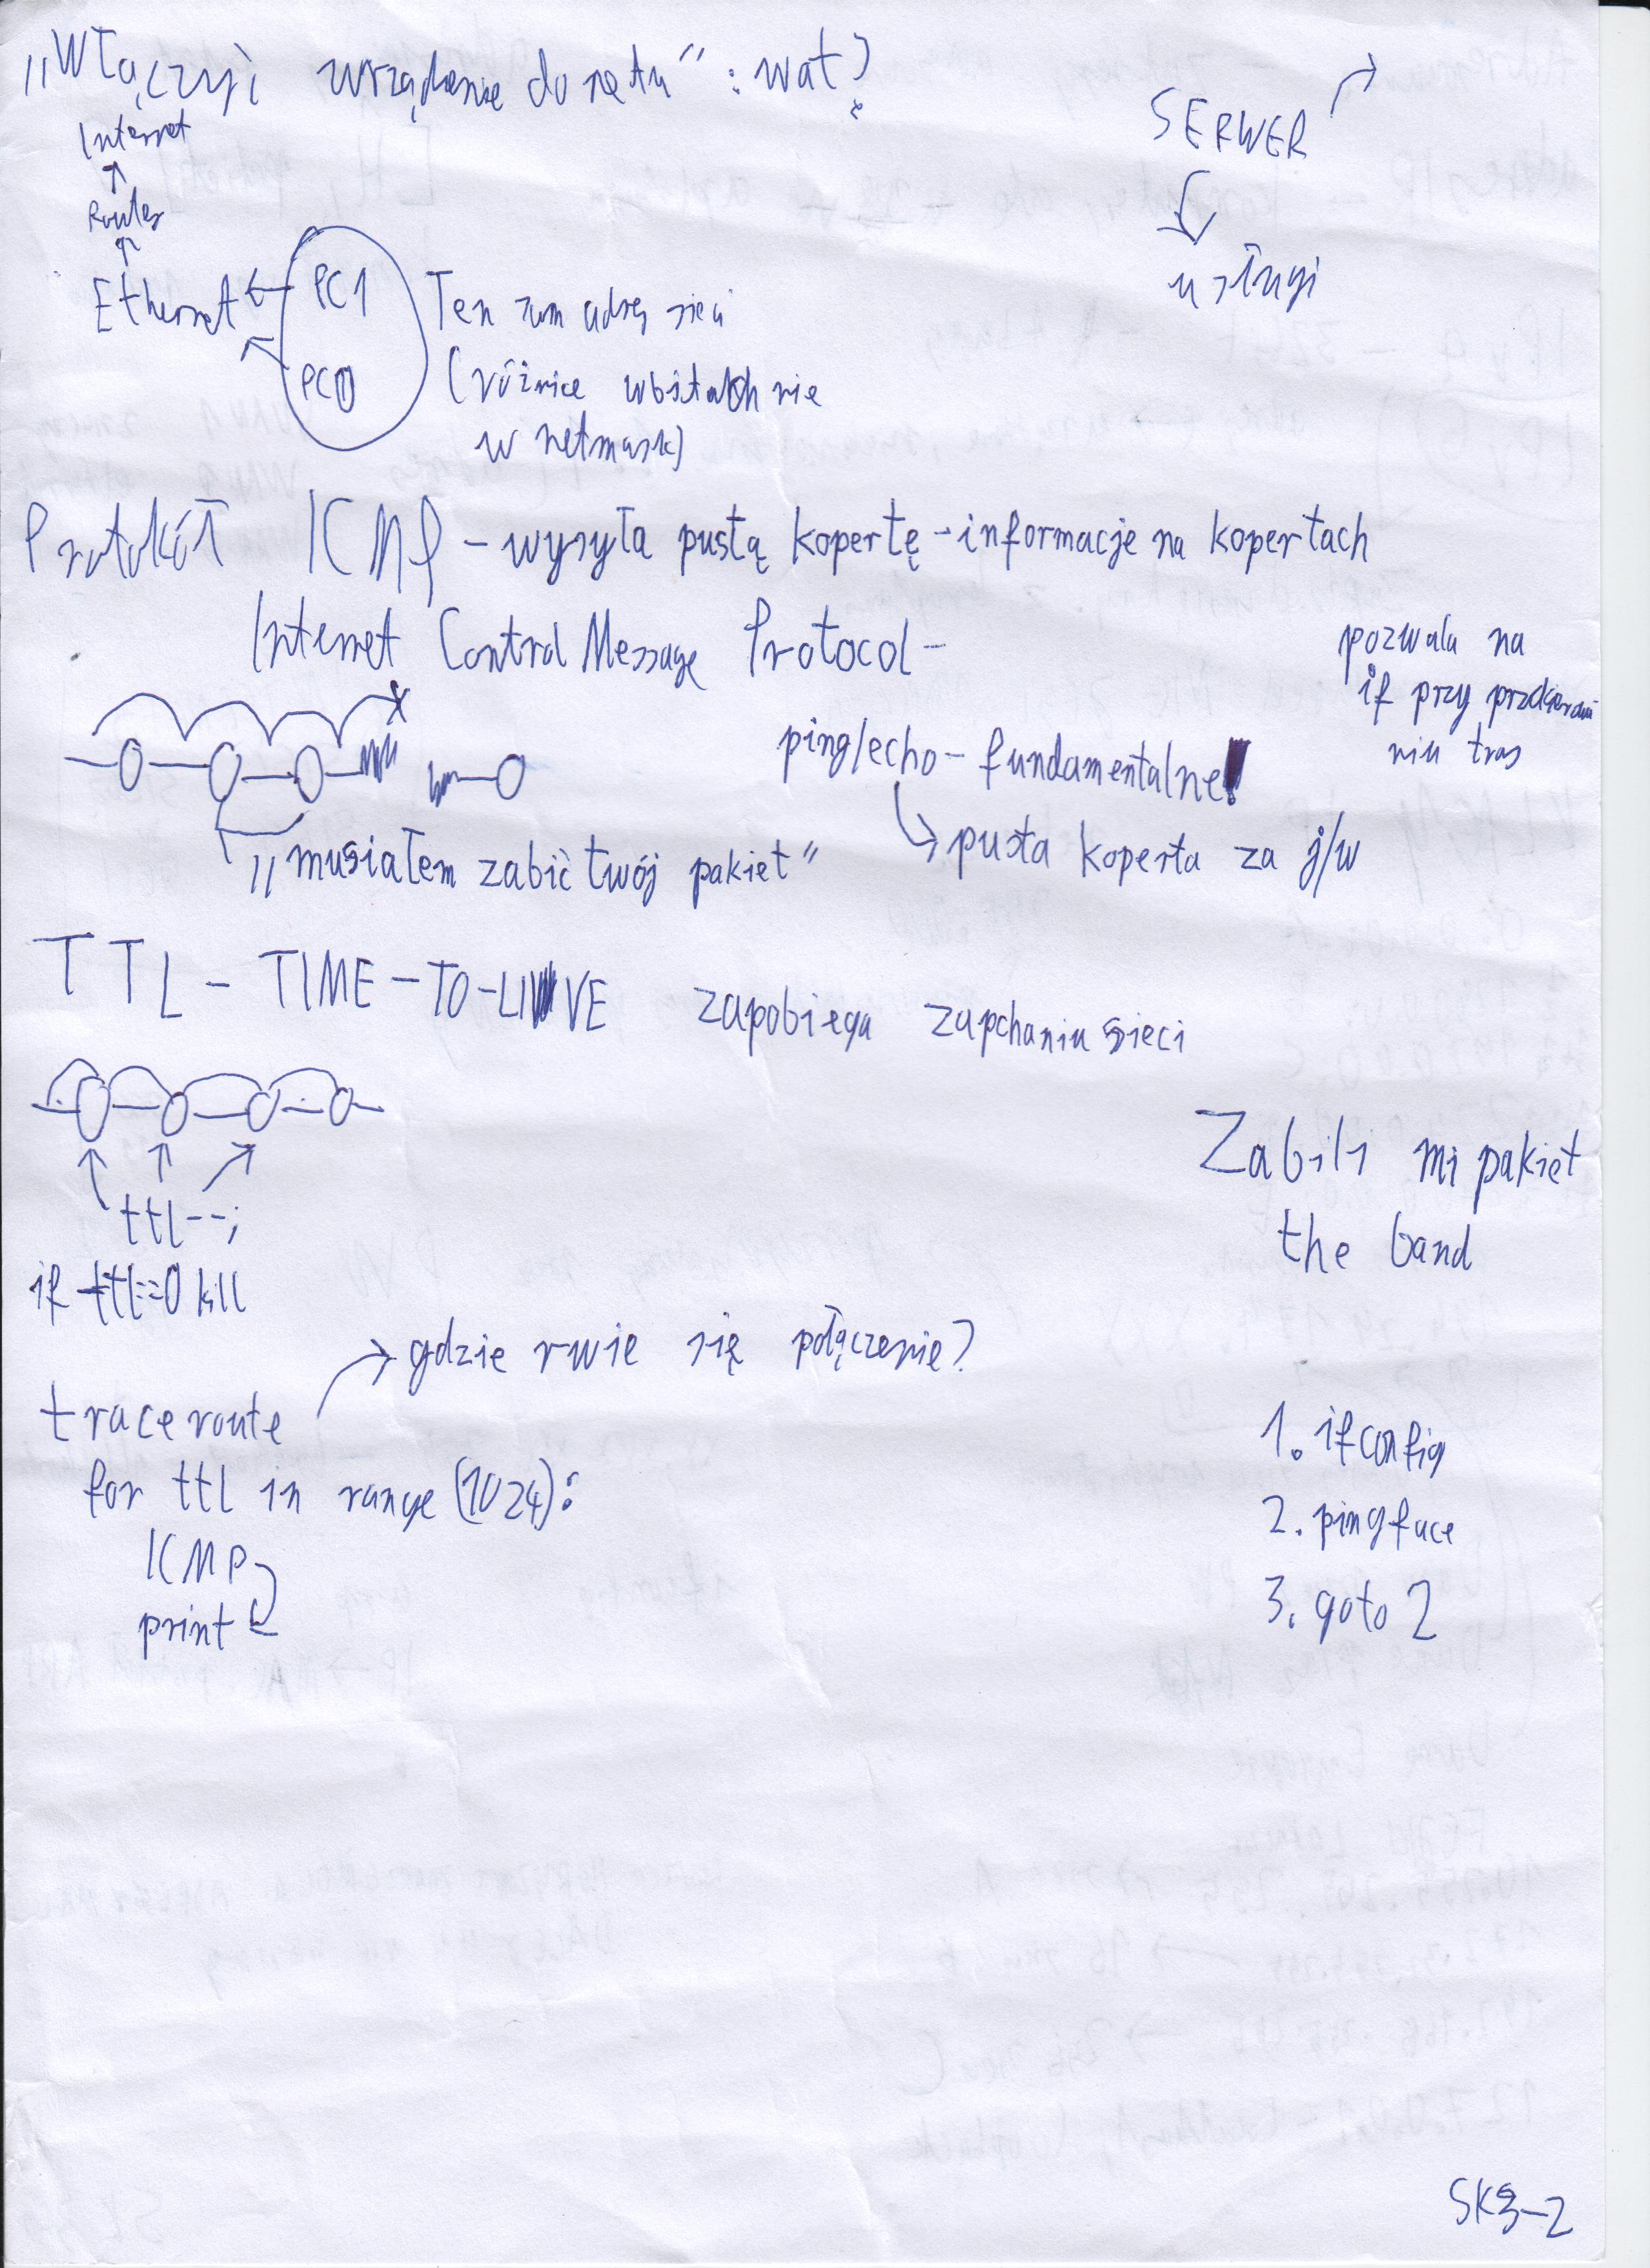 „Włączyji urządzenie do netu” : wat?
Internet
Router
Ethernet
PC1
PC0
Ten sam adres sieci
(różnice w bitach nie
w netmask)
SERWER
usługi
Protokół ICMP – wysyła pustą kopertę – informacje na kopertach
Internet Control Message Protocol –
pozwala na
if przy
tras
ping/echo – fundamentalne!
pusta koperta za j/w
„musiałem zabić twój pakiet”
TTL – TIME – TO – LIVE zapobiega zapchaniu sieci
ttl--;
if ttl==0 kill
Zabili mi pakiet
the band
gdzie rwie się połączenie?
traceroute
for ttl in range(1024):
ICMP
print
1. ifconfig
2. pingface
3. goto 2
SKS-2